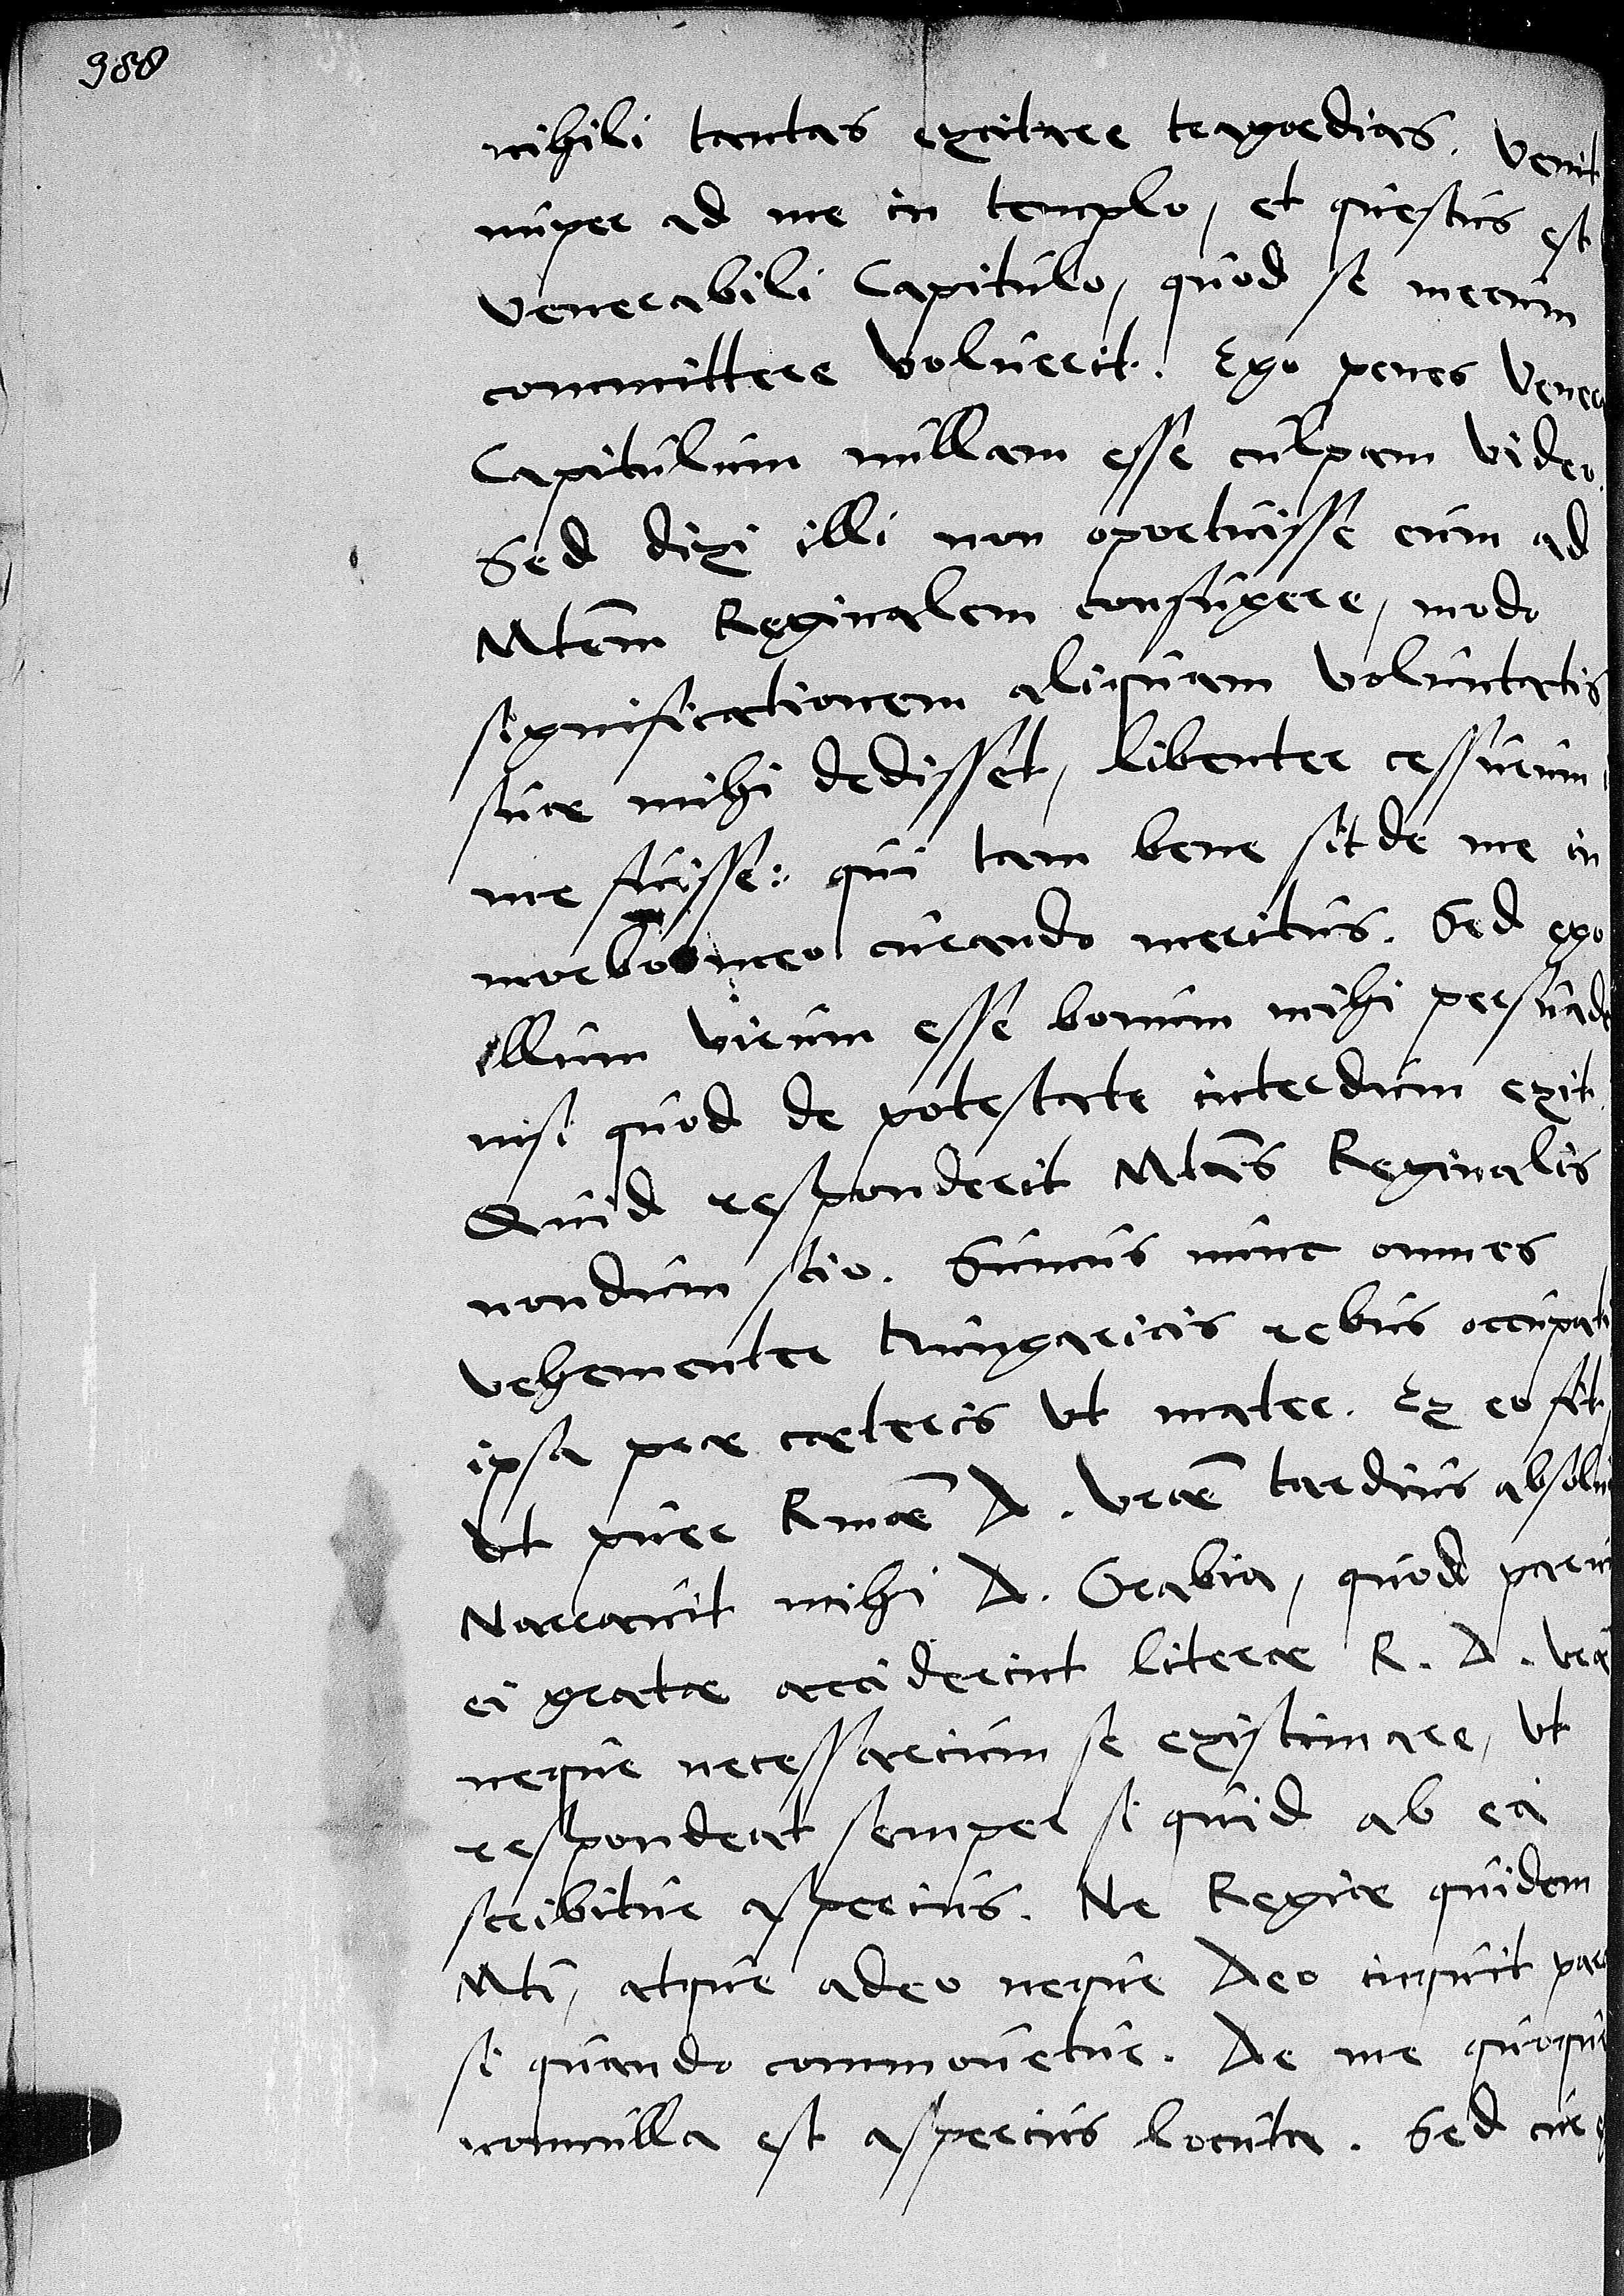 988
nihili tantas excitare tragoedias. Venit
nuper ad me in templo, et questus est
Venerabili Capitulo, quod se mecum
committere voluerit. Ego penes Vener
Capitulum nullam esse culpam video.
Sed dixi illi non oportuisse eum ad
Mtem Reginalem confugere, modo
significationem aliquam voluntatis
suae mihi dedisset, libenter cessurum
me fuisse: qui tam bene sit de me in
morbo meo curando meritus. Sed ego
illum virum esse bonum mihi persuade
nisi quod de potestate interdum exit.
Quid responderit Mtas Reginalis
nondum scio. Sumus nunc omnes
vehementer Hungaricis rebus occupati
ipsa prae caeteris ut mater. Ex eo fit,
ut puer Rmae D. Vrae tardius absolui
Narrauit mihi D. Grabia, quod parum
ei gratae acciderint literae R. D. Vrae
neque necessarium se existimare, ut
respondeat semper si quid ab ea
scribitur asperius. Ne Regiae quidem
Mti, atque adeo neque Deo inquit parc
si quando commouetur. De me quoque
nonnulla est asperius locuta. Sed cur